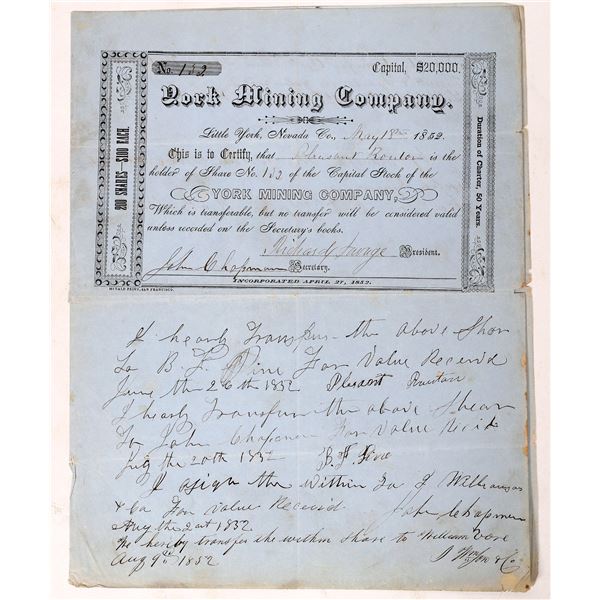 No. 132
Capital, $20,000.
York Mining Company.
Little York, Nevada Co., May 18th 1852.
This is to Certify, that Pleasant Routon is the
holder of Share No. 132 of the Capital Stock of the
YORK MINING COMPANY,
Which is transferable, but no transfer will be considered valid
unless recorded on the Secretary's books.
Richard Savage President.
John Chapman Secretary.
INCORPORATED APRIL 27, 1852.
200 SHARES—$100 EACH.
Duration of Charter, 50 Years.
HERALD PRINT, SAN FRANCISCO.
I hearby Transfur the above Shor
To B. F. For Value Receivd
June the 26th 1852 Pleasant Routon
I hearby Transfur the above Shear
To John Chapman For Value
July the 20th 1852 B. F.
I asign the within To J Williamson
& Co For Value Receivd John Chapman
Aug the 2nd 1852
We hereby transfer the within share to William
Aug 9th 1852 J & Co